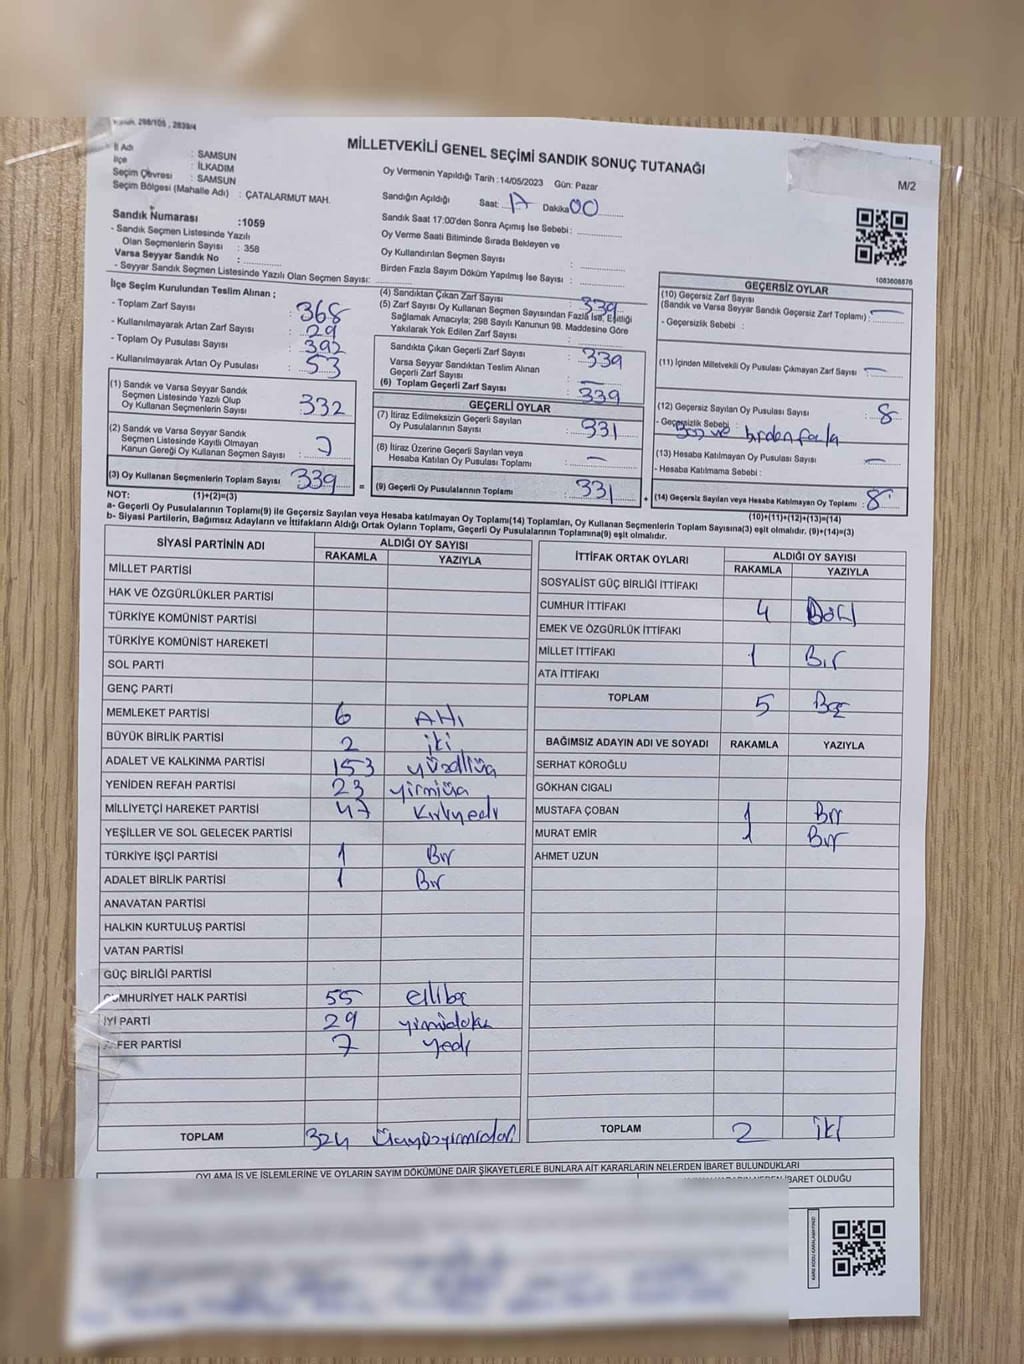 298/105 , 2839/4
MİLLETVEKİLİ GENEL SEÇİMİ SANDIK SONUÇ TUTANAĞI
M/2
İl Adı : SAMSUN
İlçe : İLKADIM
Seçim Çevresi : SAMSUN
Seçim Bölgesi (Mahalle Adı) : ÇATALARMUT MAH.
Sandık Numarası :1059
- Sandık Seçmen Listesinde Yazılı
Olan Seçmenlerin Sayısı : 358
Varsa Seyyar Sandık No :
- Seyyar Sandık Seçmen Listesinde Yazılı Olan Seçmen Sayısı:
Oy Vermenin Yapıldığı Tarih :14/05/2023 Gün: Pazar
Sandığın Açıldığı Saat: 17 Dakika 00
Sandık Saat 17:00'den Sonra Açımış İse Sebebi :
Oy Verme Saati Bitiminde Sırada Bekleyen ve
Oy Kullandırılan Seçmen Sayısı :
Birden Fazla Sayım Döküm Yapılmış İse Sayısı :
1083608876
İlçe Seçim Kurulundan Teslim Alınan ;
- Toplam Zarf Sayısı : 368
- Kullanılmayarak Artan Zarf Sayısı : 29
- Toplam Oy Pusulası Sayısı : 392
- Kullanılmayarak Artan Oy Pusulası : 53
(1) Sandık ve Varsa Seyyar Sandık
Seçmen Listesinde Yazılı Olup
Oy Kullanan Seçmenlerin Sayısı 332
(2) Sandık ve Varsa Seyyar Sandık
Seçmen Listesinde Kayıtlı Olmayan
Kanun Gereği Oy Kullanan Seçmen Sayısı : 7
(3) Oy Kullanan Seçmenlerin Toplam Sayısı 339 =
(4) Sandıktan Çıkan Zarf Sayısı : 339
(5) Zarf Sayısı Oy Kullanan Seçmen Sayısından Fazla İse, Eşitliği
Sağlamak Amacıyla; 298 Sayılı Kanunun 98. Maddesine Göre
Yakılarak Yok Edilen Zarf Sayısı :
Sandıkta Çıkan Geçerli Zarf Sayısı : 339
Varsa Seyyar Sandıktan Teslim Alınan
Geçerli Zarf Sayısı : —
(6) Toplam Geçerli Zarf Sayısı : 339
GEÇERLİ OYLAR
(7) İtiraz Edilmeksizin Geçerli Sayılan
Oy Pusulalarının Sayısı : 331
(8) İtiraz Üzerine Geçerli Sayılan veya
Hesaba Katılan Oy Pusulası Toplamı : —
(9) Geçerli Oy Pusulalarının Toplamı : 331 +
GEÇERSİZ OYLAR
(10) Geçersiz Zarf Sayısı
(Sandık ve Varsa Seyyar Sandık Geçersiz Zarf Toplamı) : —
- Geçersizlik Sebebi :
(11) İçinden Milletvekili Oy Pusulası Çıkmayan Zarf Sayısı : —
(12) Geçersiz Sayılan Oy Pusulası Sayısı : 8
- Geçersizlik Sebebi : Boş ve birden fazla
(13) Hesaba Katılmayan Oy Pusulası Sayısı : —
- Hesaba Katılmama Sebebi :
(14) Geçersiz Sayılan veya Hesaba Katılmayan Oy Toplamı : 8
NOT: (1)+(2)=(3)
(10)+(11)+(12)+(13)=(14)
a- Geçerli Oy Pusulalarının Toplamı(9) ile Geçersiz Sayılan veya Hesaba katılmayan Oy Toplamı(14) Toplamları, Oy Kullanan Seçmenlerin Toplam Sayısına(3) eşit olmalıdır. (9)+(14)=(3)
b- Siyasi Partilerin, Bağımsız Adayların ve İttifakların Aldığı Ortak Oyların Toplamı, Geçerli Oy Pusulalarının Toplamına(9) eşit olmalıdır.
SİYASİ PARTİNİN ADI ALDIĞI OY SAYISI
RAKAMLA YAZIYLA
MİLLET PARTİSİ
HAK VE ÖZGÜRLÜKLER PARTİSİ
TÜRKİYE KOMÜNİST PARTİSİ
TÜRKİYE KOMÜNİST HAREKETİ
SOL PARTİ
GENÇ PARTİ
MEMLEKET PARTİSİ 6 Altı
BÜYÜK BİRLİK PARTİSİ 2 iki
ADALET VE KALKINMA PARTİSİ 153 yüzelliüç
YENİDEN REFAH PARTİSİ 23 yirmiüç
MİLLİYETÇİ HAREKET PARTİSİ 47 Kırkyedi
YEŞİLLER VE SOL GELECEK PARTİSİ
TÜRKİYE İŞÇİ PARTİSİ 1 Bir
ADALET BİRLİK PARTİSİ 1 Bir
ANAVATAN PARTİSİ
HALKIN KURTULUŞ PARTİSİ
VATAN PARTİSİ
GÜÇ BİRLİĞİ PARTİSİ
CUMHURİYET HALK PARTİSİ 55 ellibeş
İYİ PARTİ 29 yirmidokuz
ZAFER PARTİSİ 7 Yedi
TOPLAM 324 Üçyüzyirmidört
İTTİFAK ORTAK OYLARI ALDIĞI OY SAYISI
RAKAMLA YAZIYLA
SOSYALİST GÜÇ BİRLİĞİ İTTİFAKI
CUMHUR İTTİFAKI 4 Dört
EMEK VE ÖZGÜRLÜK İTTİFAKI
MİLLET İTTİFAKI 1 Bir
ATA İTTİFAKI
TOPLAM 5 Beş
BAĞIMSIZ ADAYIN ADI VE SOYADI RAKAMLA YAZIYLA
SERHAT KÖROĞLU
GÖKHAN CIGALI
MUSTAFA ÇOBAN 1 Bir
MURAT EMİR 1 Bir
AHMET UZUN
TOPLAM 2 iki
OYLAMA İŞ VE İŞLEMLERİNE VE OYLARIN SAYIM DÖKÜMÜNE DAİR ŞİKAYETLERLE BUNLARA AİT KARARLARIN NELERDEN İBARET BULUNDUKLARI
İBARET OLDUĞU